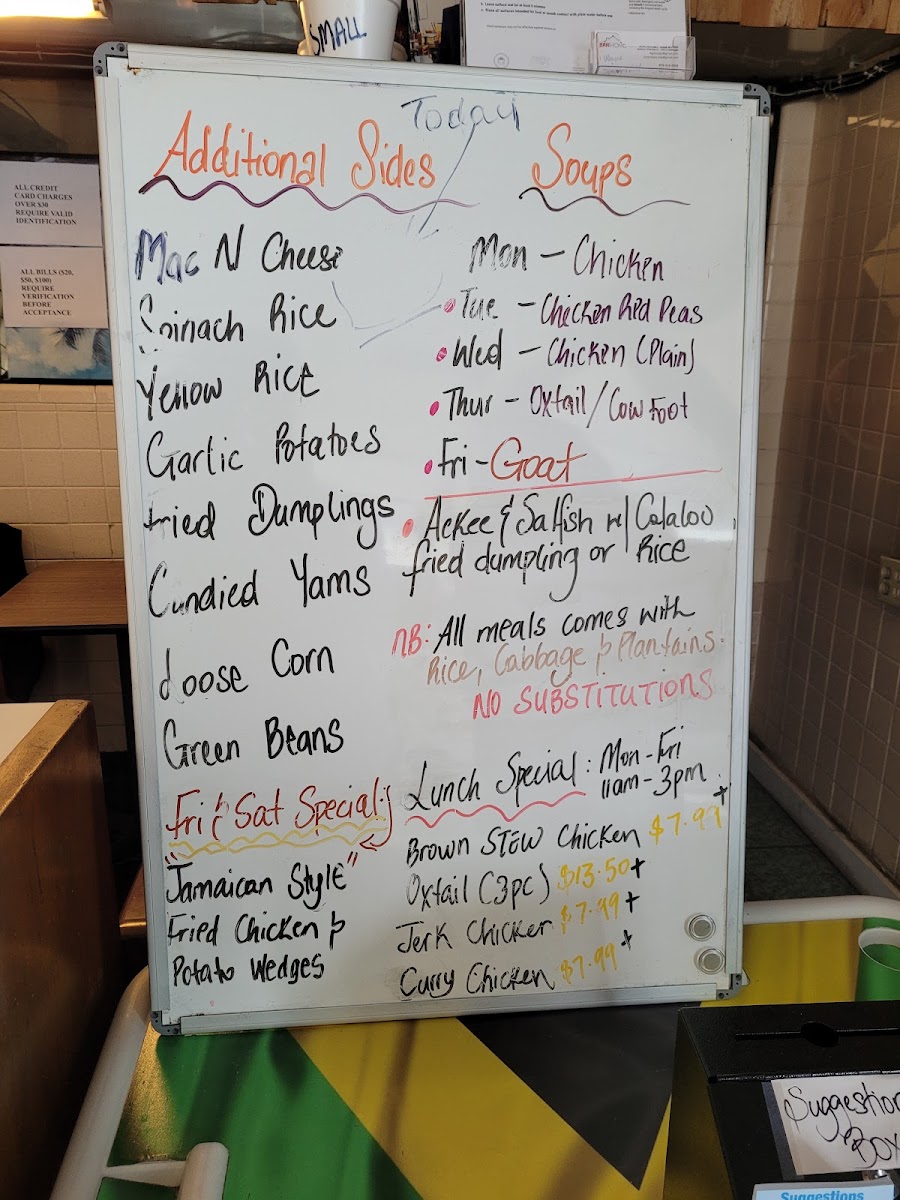 SMALL
Today
Additional Sides
Mac N Cheese
Spinach Rice
Yellow Rice
Garlic Potatoes
Fried Dumplings
Candied Yams
Loose Corn
Green Beans
Fri & Sat Special:
"Jamaican Style"
Fried Chicken &
Potato Wedges
Soups
Mon - Chicken
Tue - Chicken Red Peas
Wed - Chicken (Plain)
Thur - Oxtail/Cow Foot
Fri - Goat
Ackee & Salfish w/ Calaloo
fried dumpling or Rice
NB: All meals comes with
Rice, Cabbage & Plantains.
NO SUBSTITUTIONS
Lunch Special: Mon-Fri
11am-3pm
Brown STEW Chicken $7.99+
Oxtail (3pc) $13.50+
Jerk Chicken $7.99+
Curry Chicken $7.99+
ALL CREDIT
CARD CHARGES
OVER $30
REQUIRE VALID
IDENTIFICATION
ALL BILLS ($20,
$50, $100)
REQUIRE
VERIFICATION
BEFORE
ACCEPTANCE
Suggestion
Box
Suggestions